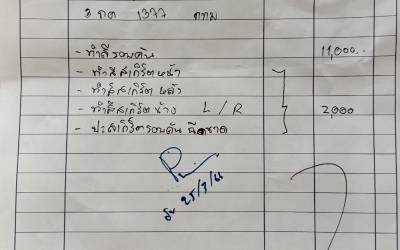 3 กด 1377 กทม
- ทำสีรอบคัน 11,000.-
- ทำสีสเกิร์ตหน้า
- ทำสีสเกิร์ต หลัง
- ทำสีสเกิร์ต ข้าง L / R 2,000
- ปะสเกิร์ตรอบคัน ฉีกขาด
25/7/66